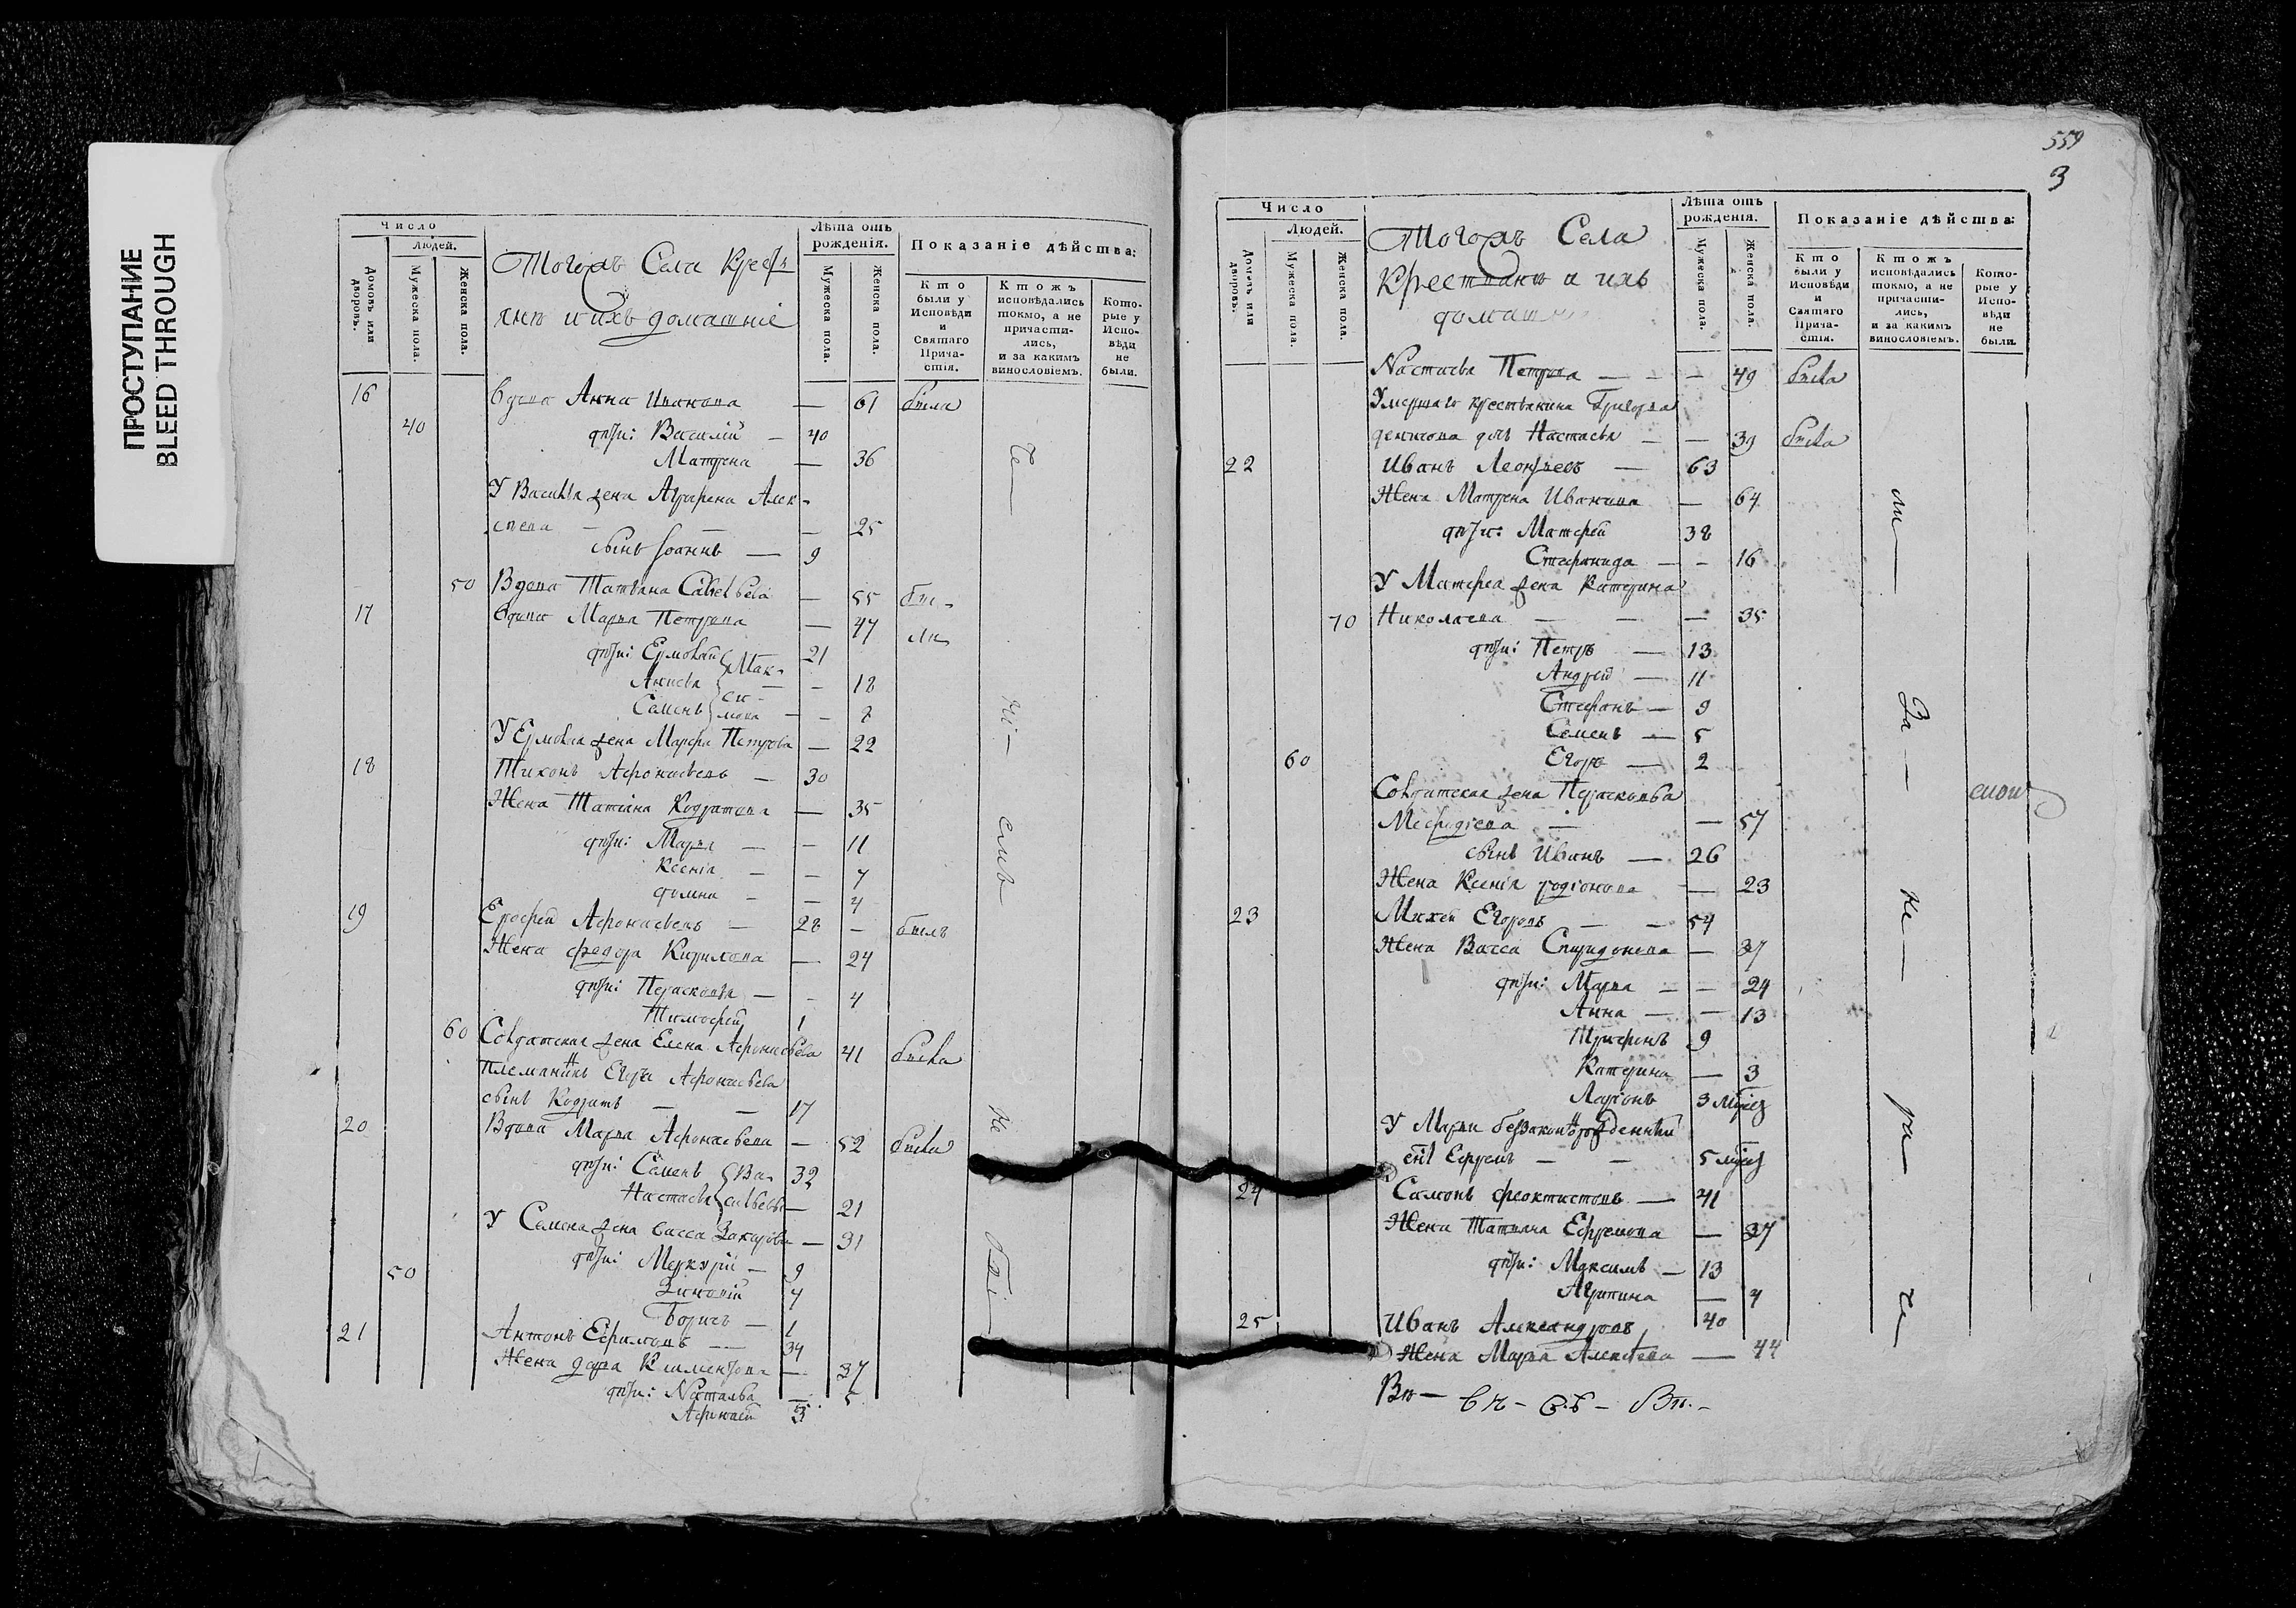 ПРОСТУПАНИЕ
BLEED THROUGH
Число
Людей.
Домовъ или дворовъ.
Мужеска пола.
Женска пола.
Тогожъ Села Кресть
янѣ и ихъ домашніе
Лѣта отъ рожденія.
Мужеска пола.
Женска пола.
Показаніе дѣйства:
Кто были у Исповѣди и Святаго Причастія.
Ктожъ исповѣдались токмо, а не причастились, и за какимъ винословіемъ.
Которые у Исповѣди не были.
16 вдова Анна Иванова — 61 была
40 дѣти: Василій — 40
Матрена — 36
У Василья жена Аграфена Алек-
сѣева — — 25
сынъ Іоаннъ — 9
50 Вдова Татьяна Савельева — 55 бы-
17 вдова Марья Петрова — 47 ли
дѣти: Ермолай Мак- 21
Анисья — — 18
Семенъ си- мова — — 7
У Ермолая жена Марфа Петрова — 22
18 Тихонъ Афонасьевъ — 30
Жена Татіана Кодратова — 35
дѣти: Марья — — 11
Ксенія — — 7
Домна — — 4
19 Ерофей Афонасьевъ — 28 — былъ
Жена Федора Кирилова — 24
дѣти: Парасковья — — 4
Тимофей 1
60 Солдатская жена Елена Афонасьева 41 была
Племянникъ Егора Афонасьева
сынъ Кодратъ — — 17
20 Вдова Марья Афонасьева — 52 была
дѣти: Семенъ Ва- 32
Настасья сильевы — 21
У Семена жена Васса Захарова — 31
дѣти: Меркурій — 9
50 Зиновій 4
Борисъ — 1
21 Антонъ Ефимовъ — 34
Жена Дарья Климентова — 37
дѣти: Наталья — 5
Афонасій 3
559
3
Число
Людей.
Домовъ или дворовъ.
Мужеска пола.
Женска пола.
Тогожъ Села
Крестьянѣ и ихъ
домашніе
Лѣта отъ рожденія.
Мужеска пола.
Женска пола.
Показаніе дѣйства:
Кто были у Исповѣди и Святаго Причастія.
Ктожъ исповѣдались токмо, а не причастились, и за какимъ винословіемъ.
Которые у Исповѣди не были.
Настасья Петрова — — — 49 была
Умершаго крестьянина Григорья
Денисова дочь Настасья — — 39 была
22 Иванъ Леонтьевъ — 63
Жена Матрена Иванова — 64
дѣти: Матфей 38
Стефанида — — 16
У Матфея жена Катерина
70 Николаева — — — 35
дѣти: Петръ — 13
Андрей — 11
Стефанъ — 9
Семенъ — 5
60 Егоръ — 2
Солдатская жена Парасковья
Мефодіева — — 57
сынъ Иванъ — 26
Жена Ксенія Родіонова — 23
23 Михей Егоровъ — — 54
Жена Васса Спиридонова — 37
дѣти: Марья — — 24
Анна — — 13
Трифонъ 9
Катерина — 3
Ларіонъ 3 мѣсец
У Марьи беззаконорожденный
сынъ Ефремъ — — 5 мѣсец
24 Самонъ Феоктистовъ — 41
Жена Татьяна Ефремова — 37
дѣти: Максимъ — 13
Агрипина — 4
25 Иванъ Александровъ 40
Жена Марья Алексѣева — 44